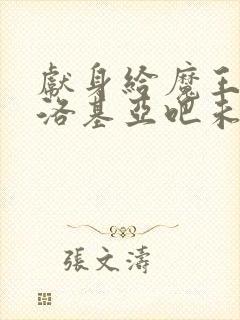 獻身給魔王
洛基亞吧未
張文濤